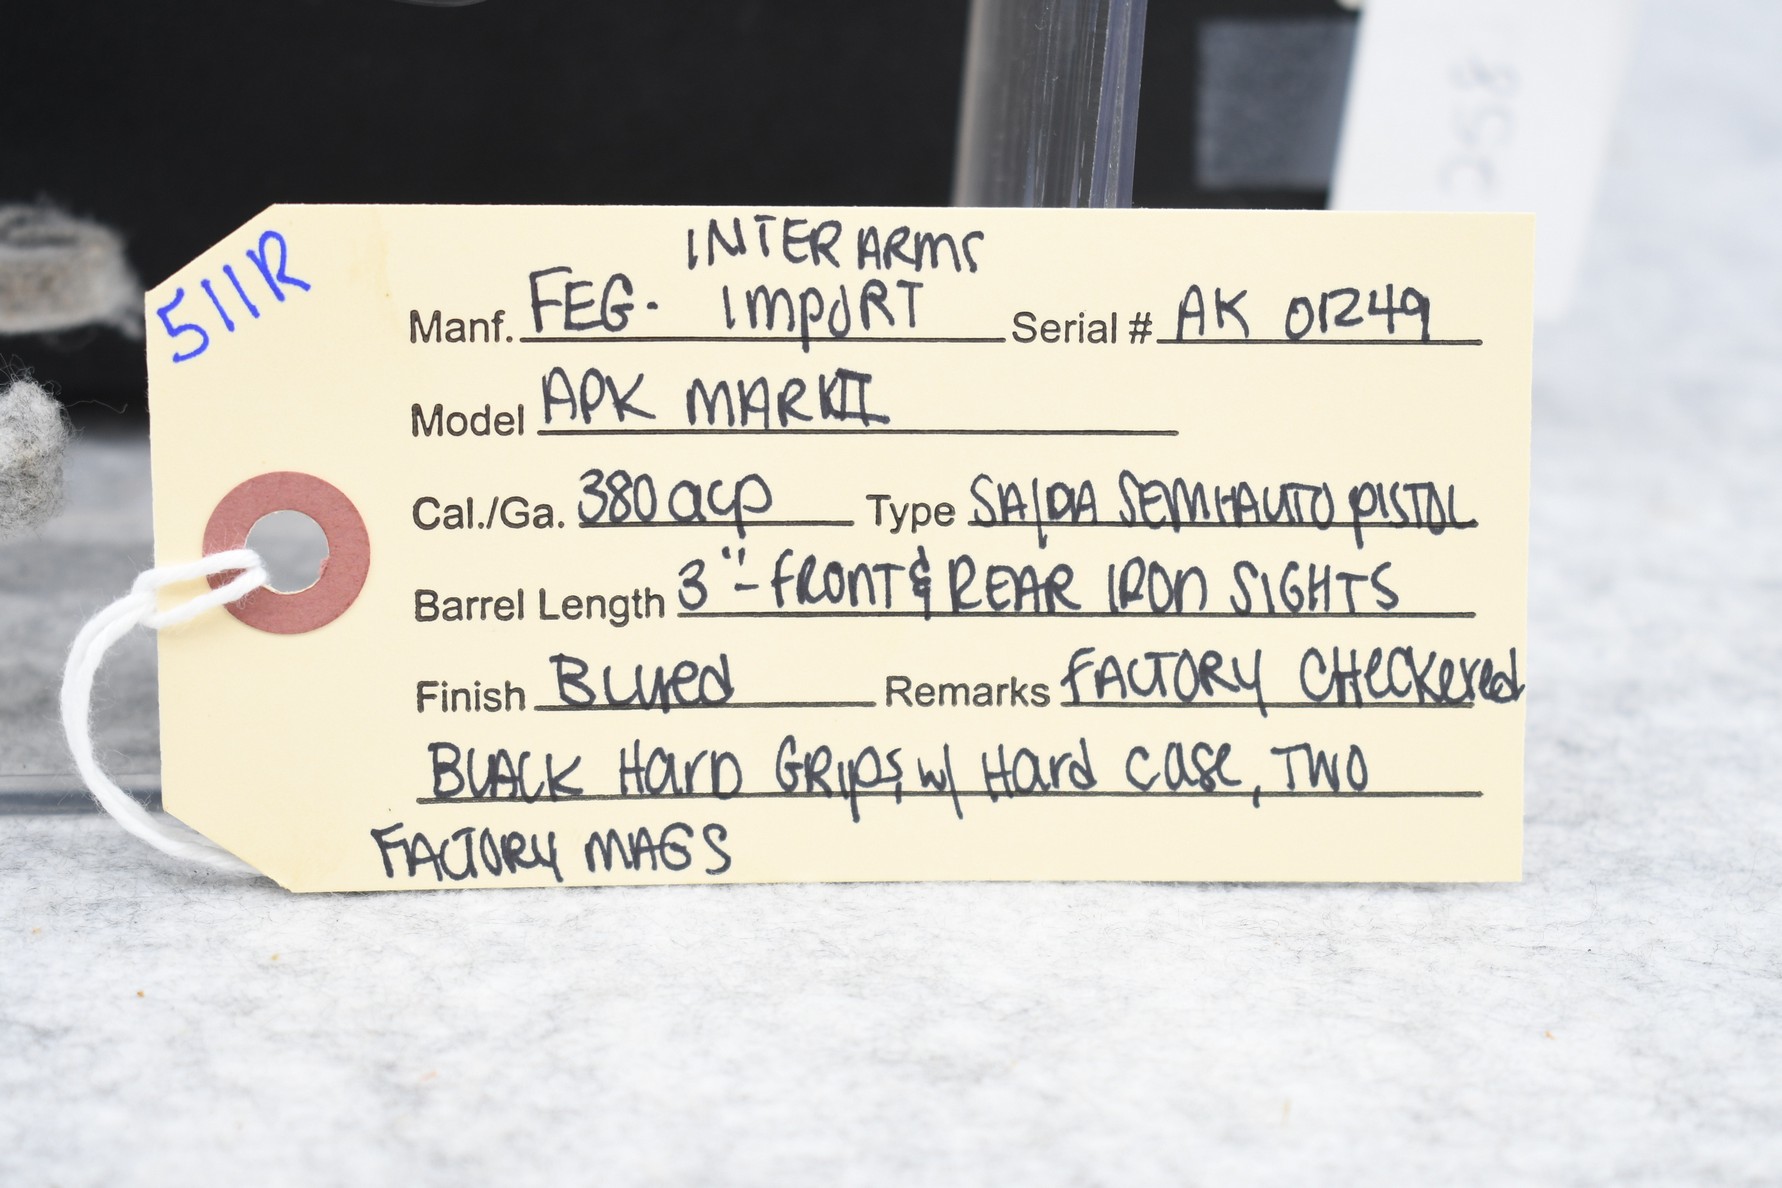 258
511R
INTER ARMS
Manf. FEG. IMPORT Serial # AK 01249
Model APK MARKII
Cal./Ga. 380 acp Type SA/DA SEMI-AUTO PISTOL
Barrel Length 3"- FRONT & REAR IRON SIGHTS
Finish Blued Remarks FACTORY CHeCKered
BLACK HarD GRips, w/ Hard case, TWO
FACTORY MAGS